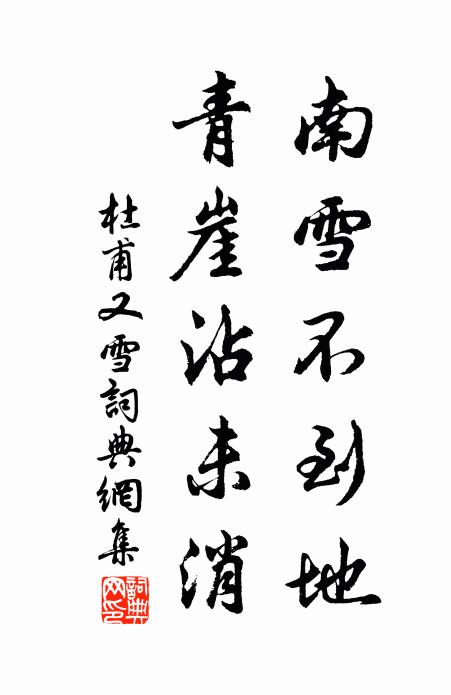 南雪不到地
青崖沾未消
杜甫又雪詞典網集
詞典網印